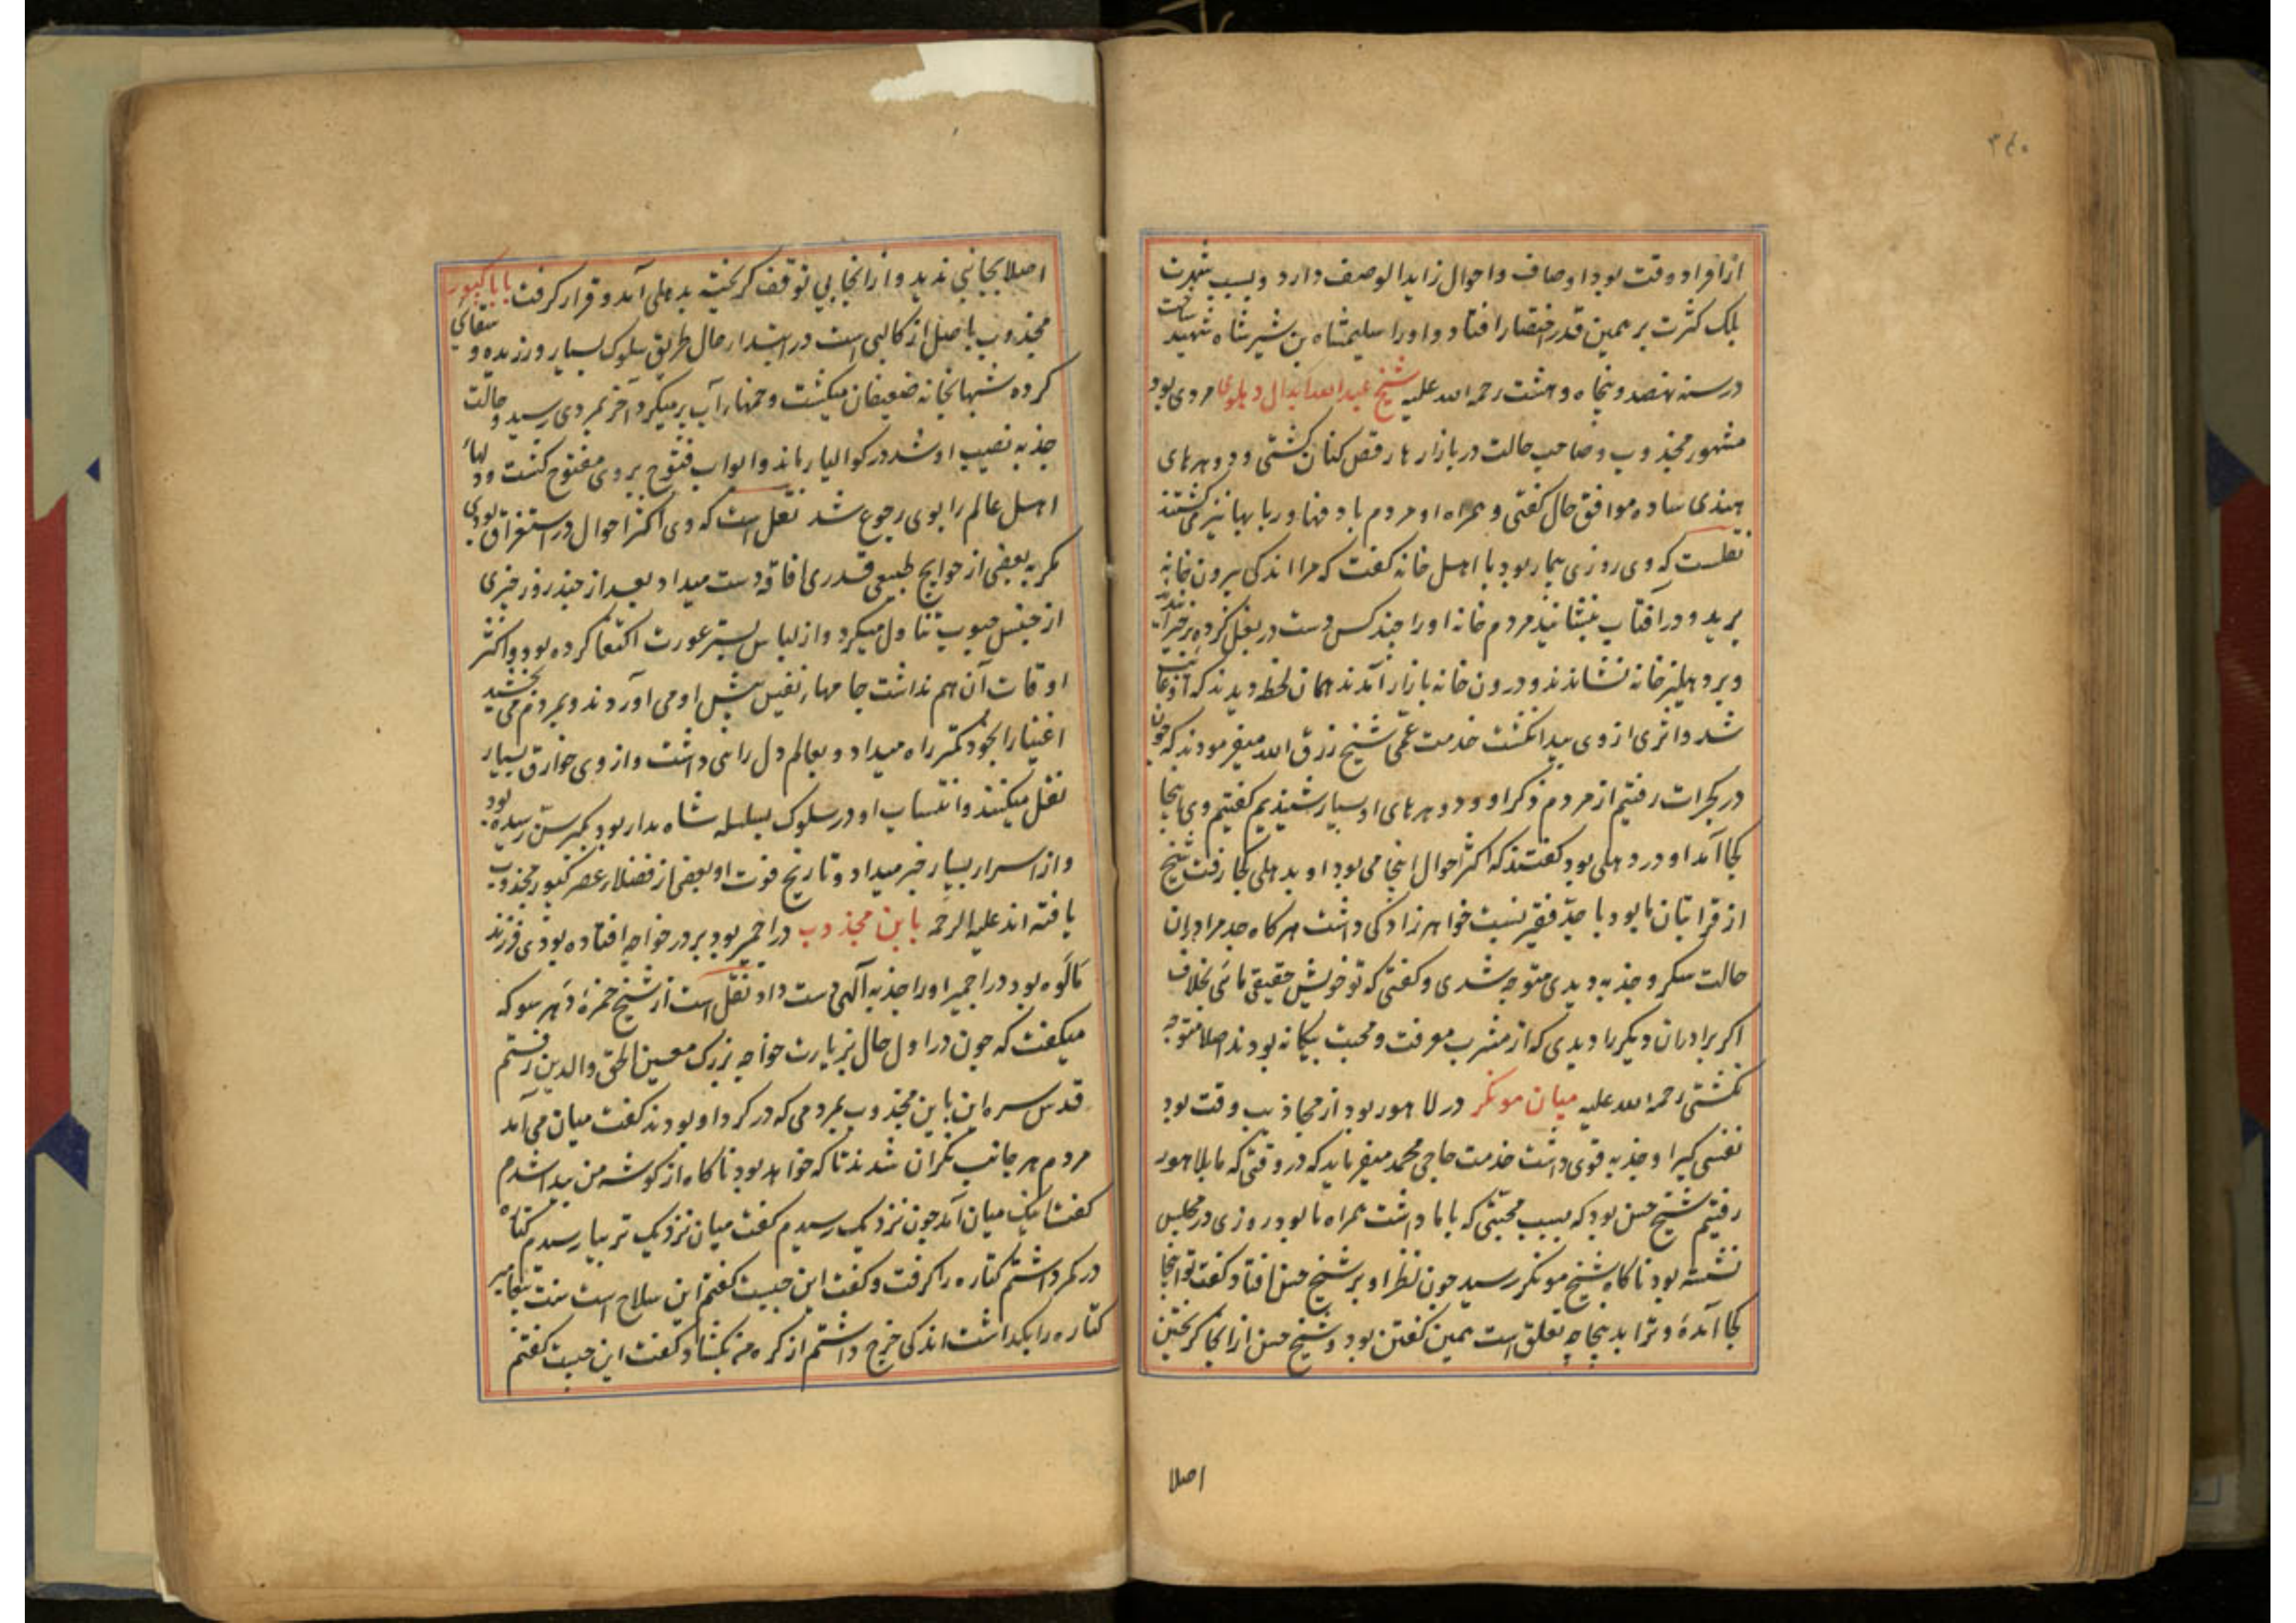 ۳۴۰
از افراد وقت بود اوصاف و احوال زاید الوصف دارد و بسبب شهرت
بلک کثرت بر همین قدر اختصار افتاد و او را سلیمشاه بن شیر شاه شهید ساخت
در سنه نهصد و پنجاه و هشت رحمه الله علیه شیخ عبدالله ابدال دهلوی مردی بود
مشهور مجذوب و صاحب حالت در بازارها رقص کنان گشتی و دوهرهای
هندی ساده موافق حال گفتی و همراه او مردم با دفها و ربابها نیز می گشتند
نقلست که وی روزی بیمار بود با اهل خانه گفت که مرا اندکی بیرون خانه
برید و در آفتاب بنشانید مردم خانه او را چند کس دست در بغل کرده برخیزانیدند
و بر دهلیز خانه نشاندند و درون خانه باز آمدند همان لحظه دیدند که او غائب
شد و اثری از وی پیدا نگشت خدمت عمی شیخ رزق الله میفرمودند که چون
در گجرات رفتیم از مردم ذکر او و دوهرهای او بسیار شنیدیم گفتیم وی اینجا
کجا آمد او در دهلی بود گفتند که اکثر احوال اینجا می بود او بدهلی کجا رفت شیخ
از قرابتان ما بود با جد فقیر نسبت خواهر زادگی داشت هر گاه جد مرا در آن
حالت سکر و جذبه دیدی متوجه شدی و گفتی که تو خویش حقیقی مائی بخلاف
اگر برادران دیگر را دیدی که از مشرب معرفت و محبت بیگانه بودند اصلا متوجه
نگشتی رحمه الله علیه میان مونگر در لاهور بود از مجاذیب وقت بود
نفسی گیرا و جذبه قوی داشت خدمت حاجی محمد میفرماید که در وقتی که ما بلاهور
رفتیم شیخ حسن بود که بسبب محبتی که با ما داشت همراه ما بود روزی در مجلس
نشسته بود ناگاه شیخ مونگر رسید چون نظر او بر شیخ حسن افتاد گفت تو اینجا
کجا آمدهٔ و ترا بدینجا چه تعلق است همین گفتن بود و شیخ حسن از آنجا گریختن
اصلا
اصلا بجانبی ندید و از آنجا بی توقف گریخته بدهلی آمد و قرار گرفت بابا کپور
مجذوب با صل از کالپی است در ابتدا حال طریق سلوک بسیار ورزیده و سقائی
کرده شبها بخانه ضعیفان میگشت و خمها را آب پر میکرد آخر بمردی رسید و حالت
جذبه نصیب او شد در گوالیار ماند و ابواب فتوح بر وی مفتوح گشت و دلهاء
اهل عالم را بوی رجوع شد نقل است که وی اکثر احوال در استغراق بودی
مگر به بعضی از حوایج طبیعی قدری افاقه دست میداد بعد از چند روز چیزی
از جنس حبوب تناول میکرد و از لباس بستر عورت اکتفا کرده بود و اکثر
اوقات آن هم نداشت جامهاء نفیس پیش او می آوردند و بمردم می بخشید
اغنیا را بخود کمتر راه میداد و بعالم دل را نمی داشت و از وی خوارق بسیار
نقل میکنند و انتساب او در سلوک بسلسله شاه مدار بود بکبر سن رسیده بود
و از اسرار بسیار خبر میداد و تاریخ فوت او بعضی از فضلاء عصر کپور مجذوب
یافته اند علیه الرحمه باین مجذوب در اجمیر بود بر در خواجه افتاده بودی فرزند
مالوه بود در اجمیر او را جذبه آلهی دست داد نقل است از شیخ حمزهٔ دهرسو که
میگفت که چون در اول حال بزیارت خواجه بزرگ معین الحق والدین رفتم
قدس سره این باین مجذوب بمردمی که در گرد او بودند گفت میان می آمد
مردم هر جانب نگران شدند تا که خواهد بود ناگاه از گوشه من پیدا شدم
گفت اینک میان آمد چون نزدیک رسیدم گفت میان نزدیک تر بیا رسیدم کتاره
در کمر داشتم کتاره را گرفت و گفت این چیست گفتم این سلاح است سنت پیغامبر
کتاره را بگذاشت اندکی خرج داشتم از گره من بکشاد گفت این چیست گفتم